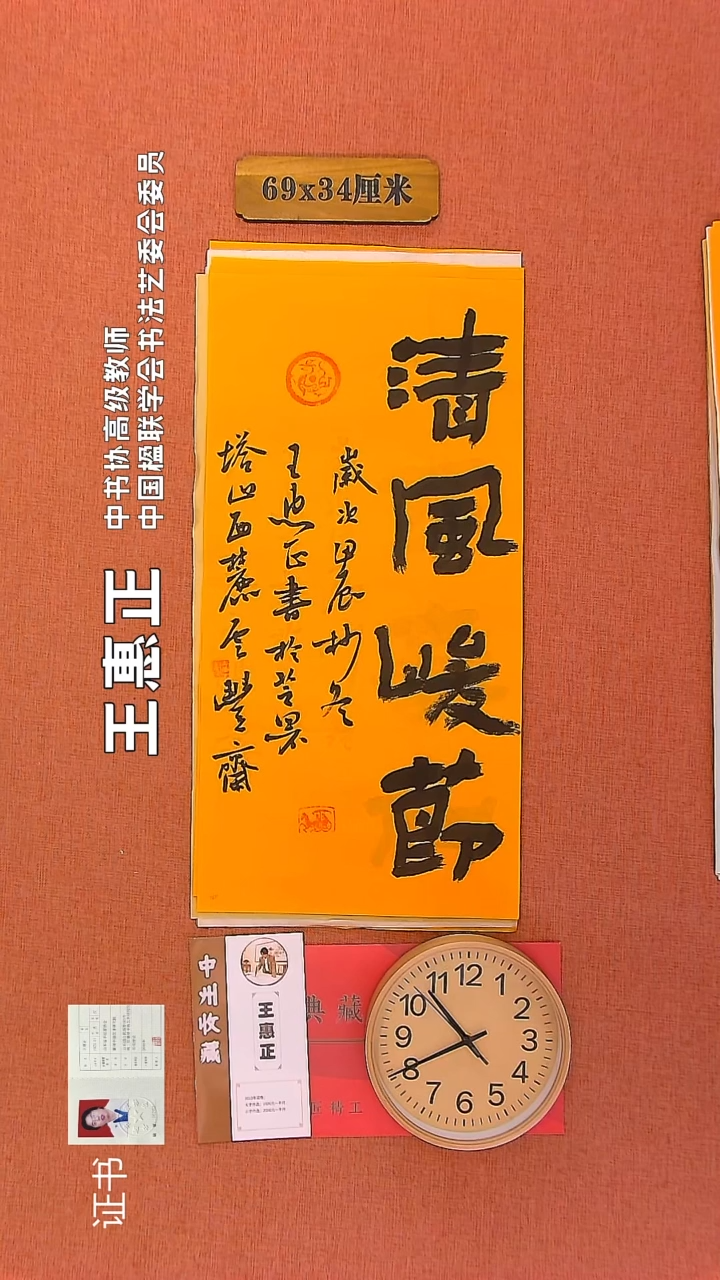 69x34厘米
清風峻節
歲次甲辰杪冬
王惠正書於芸果
塔山西麓雲豐齋
王惠正
中书协高级教师
中国楹联学会书法艺委会委员
证书
典藏
王惠正
12
1
2
3
4
5
6
7
8
9
10
11